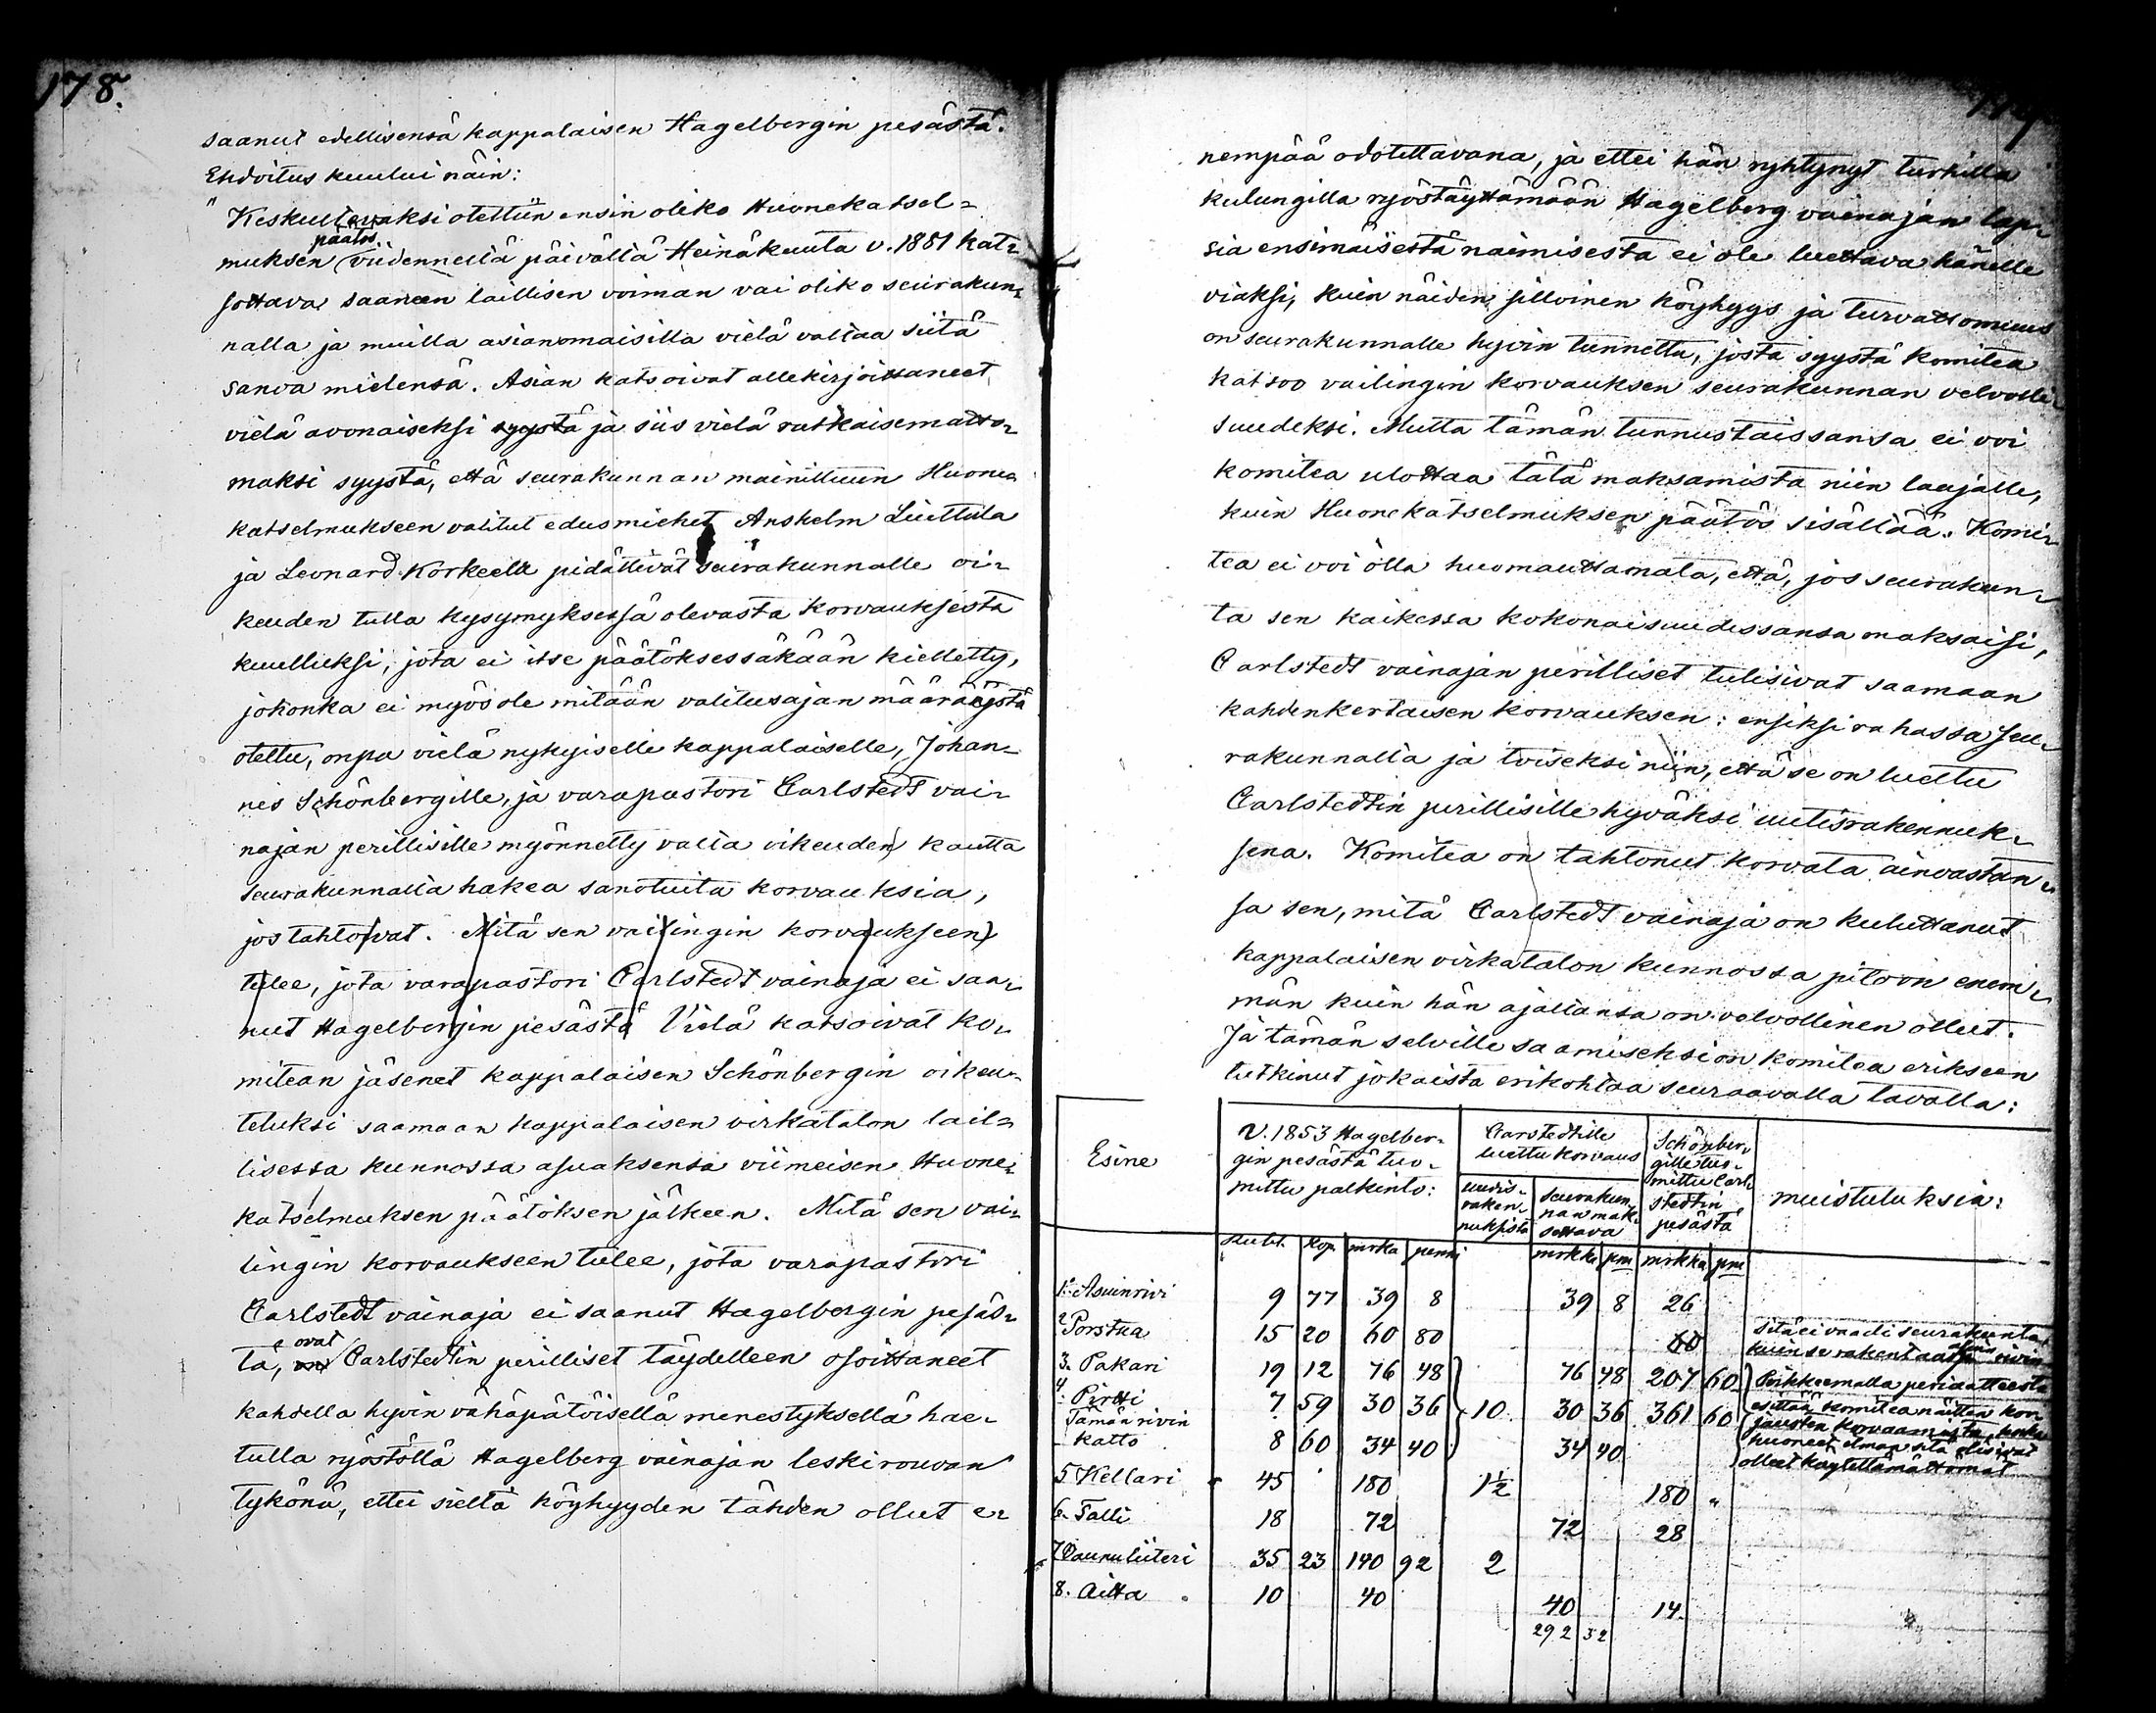 178.
saanut edellisensä kappalaisen Hagelbergin pesästä.
Ehdoitus kuului näin:
"Keskusteltavaksi otettiin ensin oliko Huonekatsel-
päätös
muksen viidennellä päivällä Heinäkuuta v. 1881 kat-
sottava saaneen laillisen voiman vai oliko seurakun-
nalla ja muilla asianomaisilla vielä valtaa siitä
sanoa mielensä. Asian katsoivat allekirjoittaneet
vielä avonaiseksi syystä ja siis vielä ratkaisematto-
maksi syystä, että seurakunnan mainittuun Huone-
katselmukseen valitut edusmiehet Anshelm Liuttula
ja Leonard Korkeela pidättivät seurakunnalle oi-
keuden tulla kysymyksessä olevasta korvauksesta
kuulluksi, jota ei itse päätöksessäkään kielletty,
jokonka ei myös ole mitään valitusajan määräystä
otettu, onpa vielä nykyiselle kappalaiselle, Johan-
nes Schönbergille, ja varapastori Carlstedt vai-
najan perillisille myönnetty valta oikeuden kautta
seurakunnalta hakea sanotuita korvauksia,
jos tahtovat. Mitä sen vailingin korvaukseen
tulee, jota varapastori Carlstedt vainaja ei saa-
nut Hagelbergin pesästä Vielä katsoivat ko-
mitean jäsenet kappalaisen Schönbergin oikeu-
tetuksi saamaan kappalaisen virkatalon lail-
lisessa kunnossa asuaksensa viimeisen Huone-
katselmuksen päätöksen jälkeen. Mitä sen vai-
lingin korvaukseen tulee, jota varapastori
Carlstedt vainaja ei saanut Hagelbergin pesäs-
ovat
tä, Carlstedtin perilliset täydelleen osoittaneet
kahdella hyvin vähäpätöisellä menestyksellä hae-
tulla ryöstöllä Hagelberg vainajan leskirouvan
tykönä, ettei sieltä köyhyyden tähden ollut e-
nempää odotettavana, ja ettei hän ryhtynyt turhilla
kulungilla ryöstäyttämään Hagelberg vainajan lap-
sia ensimäisestä naimisesta ei ole luettava hänelle
viaksi, kuin näiden silloinen köyhyys ja turvattomuus
on seurakunnalle hyvin tunnettu, josta syystä komitea
katsoo vailingin korvauksen seurakunnan velvolli-
suudeksi. Mutta tämän tunnustaissansa ei voi
komitea ulottaa tätä maksamista niin laajalle,
kuin Huonekatselmuksen päätös sisältää. Komi-
tea ei voi olla huomauttamata, että, jos seurakun-
ta sen kaikessa kokonaisuudessansa maksaisi,
Carlstedt vainajan perilliset tulisivat saamaan
kahdenkertaisen korvauksen: ensiksi rahassa seu-
rakunnalta ja toiseksi niin, että se on luettu
Carlstedtin perillisille hyväksi uutisrakennuk-
sena. Komitea on tahtonut korvata ainoastan-
sa sen, mitä Carlstedt vainaja on kuluttanut
kappalaisen virkatalon kunnossa pitoon enem-
män kuin hän ajallansa on velvollinen ollut.
Ja tämän selville saamiseksi on komitea erikseen
tutkinut jokaista erikohtaa seuraavalla tavalla:
Esine
v. 1853 Hagelber-
gin pesästä tuo-
mittu palkinto:
Carstedtille
luettu korvaus
uudis-
raken-
nuksista
seurakun-
nan mak-
settava
Schönber-
gille tuo-
mittu Carl-
stedtin
pesästä
muistutuksia:
Rubl. kop. mrka penni mrkka pni mrkka pni
1. Asuinrivi 9 77 39 8 39 8 26
2 Porstua 15 20 60 80 60 sitä ei vaadi seurakunta,
3. Pakari 19 12 76 48 76 48 207 60 Poikkeemalla periaatteesta
4. Pirtti 7 59 30 36 10 30 36 361 60 esittää komitea näitten kor-
Tämän rivin
katto 8 60 34 40 34 40 huoneet ilman sitä olisivat
olleet käytettämättömät
5 Kellari 45 180 1½ 180 "
6. Talli 18 72 72 28
7 Vaunuliiteri 35 23 140 92 2
8. Aitta 10 40 40 14
292 32